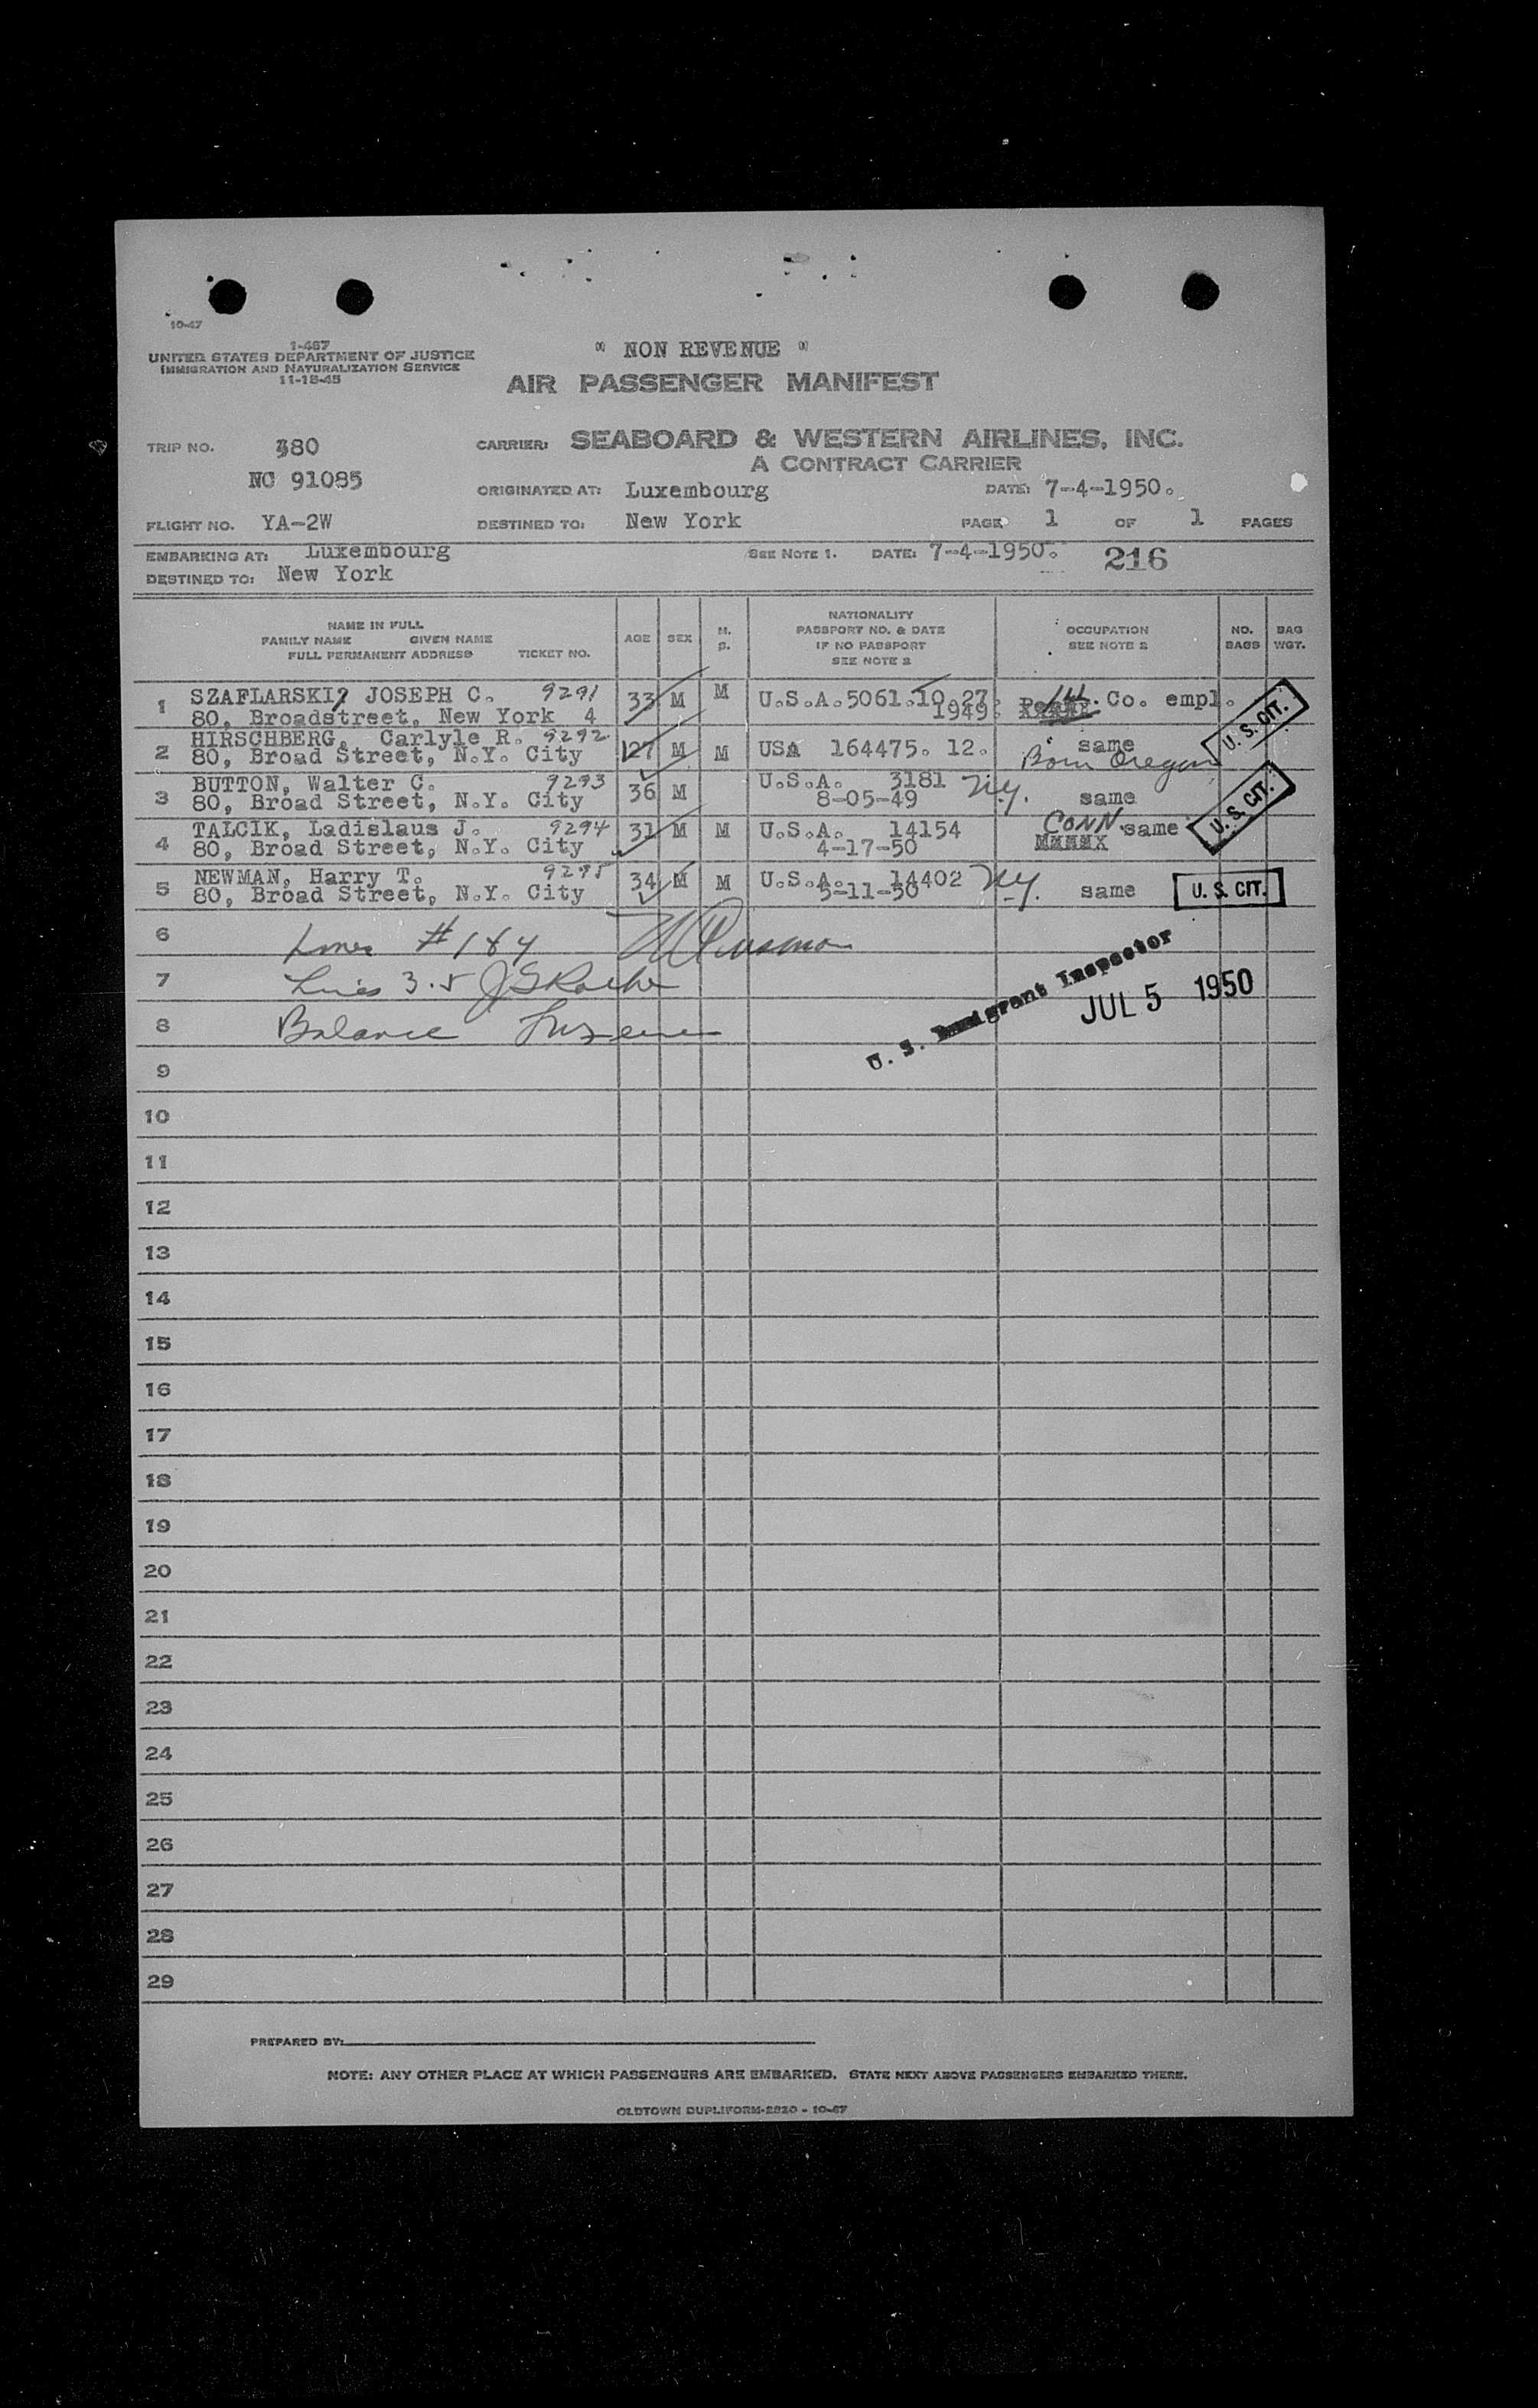 10-47
1-467
UNITED STATES DEPARTMENT OF JUSTICE
IMMIGRATION AND NATURALIZATION SERVICE
11-15-45
" NON REVENUE "
AIR PASSENGER MANIFEST
TRIP NO. 380
CARRIER: SEABOARD & WESTERN AIRLINES, INC.
A CONTRACT CARRIER
NC 91085
ORIGINATED AT: Luxembourg DATE: 7-4-1950.
FLIGHT NO. YA-2W DESTINED TO: New York PAGE 1 OF 1 PAGES
EMBARKING AT: Luxembourg SEE NOTE 1. DATE: 7-4-1950. 216
DESTINED TO: New York
NAME IN FULL
FAMILY NAME GIVEN NAME
FULL PERMANENT ADDRESS TICKET NO.
AGE SEX M. S.
NATIONALITY
PASSPORT NO. & DATE
IF NO PASSPORT
SEE NOTE 2
OCCUPATION
SEE NOTE 2
NO. BAGS
BAG WGT.
1 SZAFLARSKI, JOSEPH C. 9291 33 M M U.S.A. 5061. 10 27 Co. empl.
80, Broadstreet, New York 4 1949
U. S. CIT.
2 HIRSCHBERG, Carlyle R. 9292 27 M M USA 164475. 12. same
80, Broad Street, N.Y. City Born Oregon
3 BUTTON, Walter C. 9293 36 M U.S.A. 3181 N.Y. same
80, Broad Street, N.Y. City 8-05-49
U. S. CIT.
4 TALCIK, Ladislaus J. 9294 31 M M U.S.A. 14154 CONN. same
80, Broad Street, N.Y. City 4-17-50
5 NEWMAN, Harry T. 9295 34 M M U.S.A. 14402 N.Y. same
80, Broad Street, N.Y. City 5-11-50
U. S. CIT.
6 Lines #1&4
7 Lines 3.5 J S Roche
8 Balance
U. S. Immigrant Inspector
JUL 5 1950
9
10
11
12
13
14
15
16
17
18
19
20
21
22
23
24
25
26
27
28
29
PREPARED BY:
NOTE: ANY OTHER PLACE AT WHICH PASSENGERS ARE EMBARKED. STATE NEXT ABOVE PASSENGERS EMBARKED THERE.
OLDTOWN DUPLIFORM-2820 - 10-47